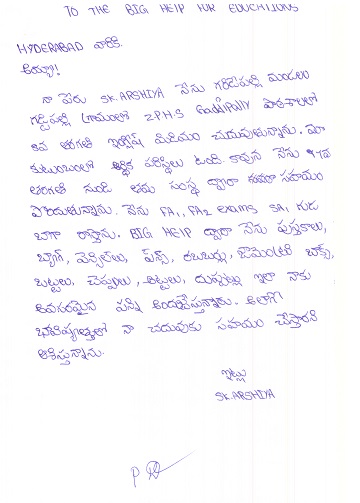 TO THE BIG HELP FOR EDUCTIONS
HYDERABAD వారికి
అయ్యా!
నా పేరు SK.ARSHIYA నేను గరిడేపల్లి మండలం
గడ్డిపల్లి గ్రామంలో Z.P.H.S Gaddipally పాఠశాలలో
తరగతి ఇంగ్లీష్ మీడియం చదువుతున్నాను. మా
కుటుంబంలో ఆర్థిక పరిస్థితి కావున నేను
తరగతి నుండి తమ సంస్థ ద్వారా సహాయం
పొందుతున్నాను. నేను FA1, FA2 exams SA1 కుడ
బాగా రాస్తాను. BIG HELP ద్వారా నేను పుస్తకాలు,
బ్యాగ్, పెన్సిల్‌లు, పెన్స్, రబ్బర్లు, జామెంట్రీ బాక్స్,
బట్టలు, చెప్పులు, అట్టలు, దుప్పట్లు ఇలా నాకు
అవసరమైనవన్ని అందుకుంటున్నాను. అలాగే
భవిష్యత్తులో నా చదువుకు సహాయం చేస్తారని
ఆశిస్తున్నాను.
ఇట్లు
SK.ARSHIYA